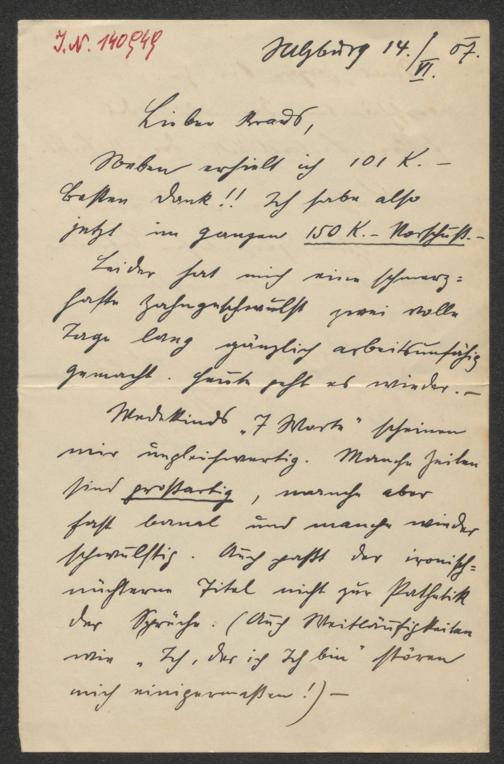 J.N. 140949
Salzburg 14./VI. 07.
Lieber Kraus,
Soeben erhielt ich 101 K. –
Besten Dank!! Ich habe also
jetzt im ganzen 150 K. – Vorschuß. –
Leider hat mich eine schmerz=
hafte Zahngeschwulst zwei volle
Tage lang gänzlich arbeitsunfähig
gemacht. Heute geht es wieder. –
Wedekinds „7 Worte“ scheinen
mir ungleichwertig. Manche Zeilen
sind großartig, manche aber
fast banal und manche wieder
schwülstig. Auch paßt der ironisch=
nüchterne Titel nicht zur Pathetik
der Sprüche. (Auch Weitläufigkeiten
wie „Ich, der ich Ich bin“ stören
mich einigermaßen!) –